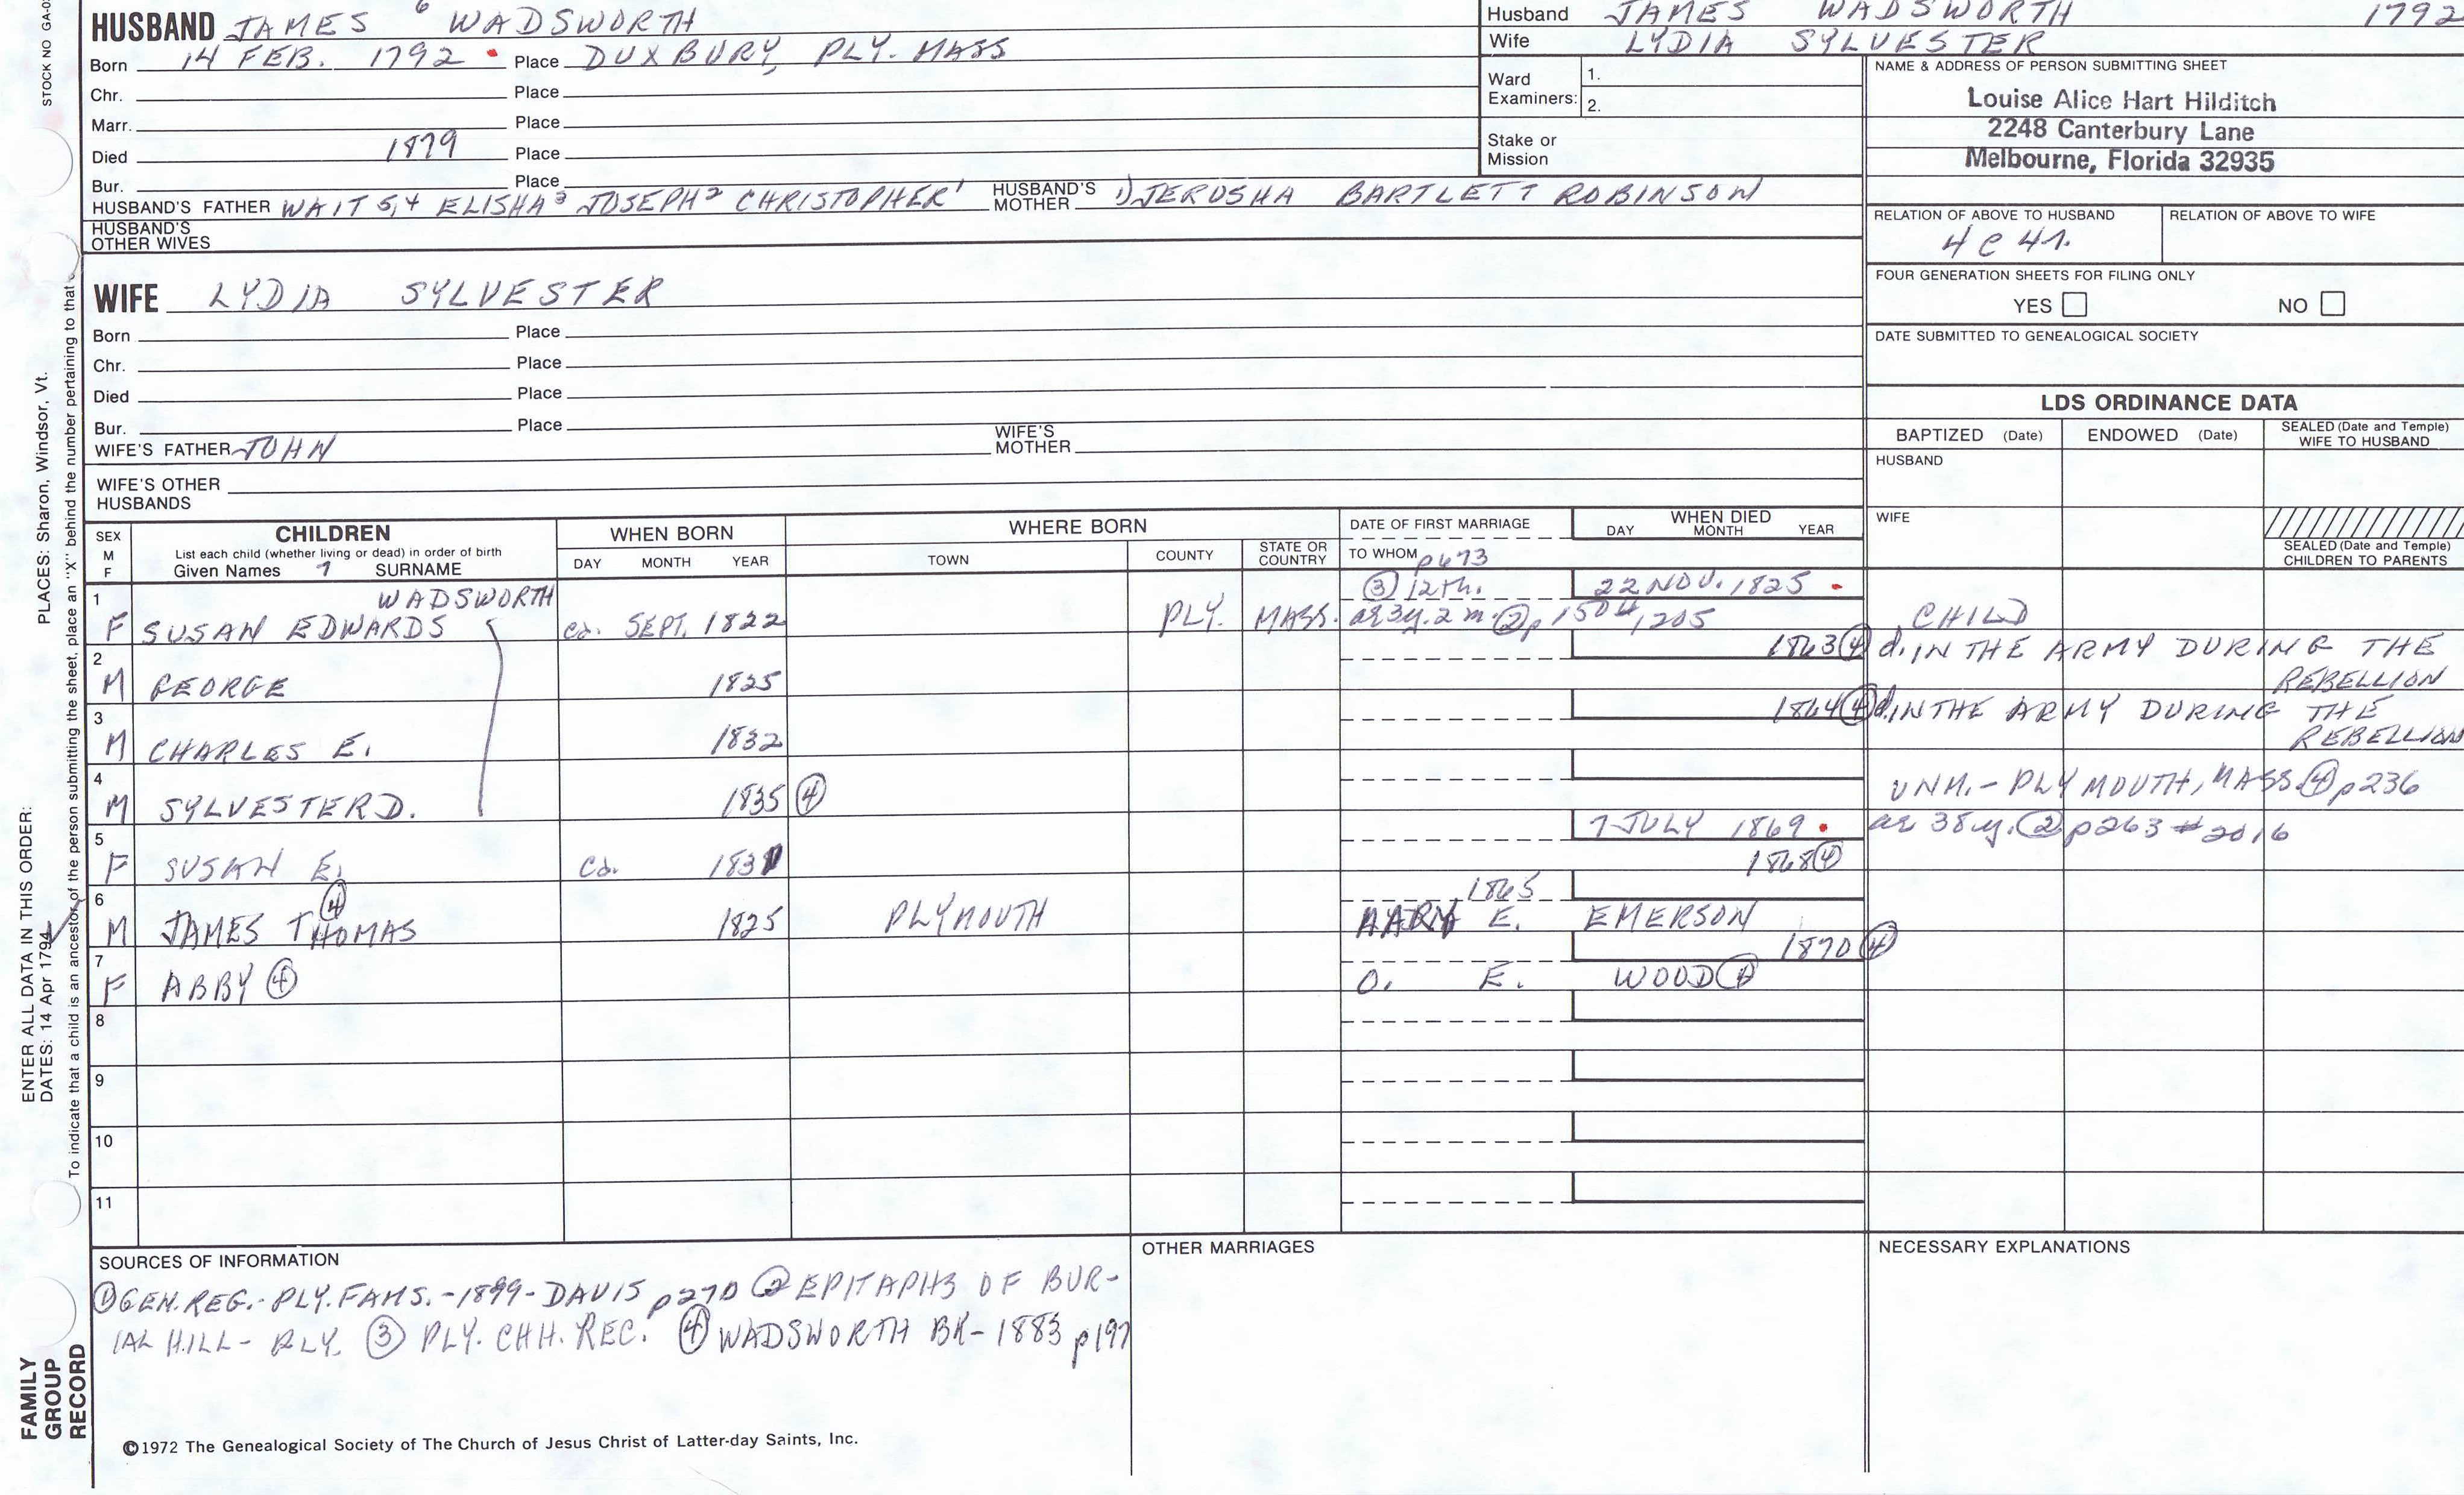 STOCK NO GA-0
HUSBAND JAMES 6 WADSWORTH
Born 14 FEB. 1792 Place DUXBURY, PLY. MASS
Chr. Place
Marr. Place
Died 1879 Place
Bur. Place
HUSBAND'S FATHER WAIT 5,4 ELISHA 3 JOSEPH 2 CHRISTOPHER 1 HUSBAND'S MOTHER 1) JERUSHA BARTLETT ROBINSON
HUSBAND'S OTHER WIVES
Husband JAMES WADSWORTH 1792
Wife LYDIA SYLVESTER
Ward Examiners: 1.
2.
Stake or Mission
NAME & ADDRESS OF PERSON SUBMITTING SHEET
Louise Alice Hart Hilditch
2248 Canterbury Lane
Melbourne, Florida 32935
RELATION OF ABOVE TO HUSBAND RELATION OF ABOVE TO WIFE
4 C 4
FOUR GENERATION SHEETS FOR FILING ONLY
YES NO
DATE SUBMITTED TO GENEALOGICAL SOCIETY
WIFE LYDIA SYLVESTER
Born Place
Chr. Place
Died Place
Bur. Place
WIFE'S FATHER JOHN WIFE'S MOTHER
WIFE'S OTHER HUSBANDS
LDS ORDINANCE DATA
BAPTIZED (Date) ENDOWED (Date) SEALED (Date and Temple) WIFE TO HUSBAND
HUSBAND
WIFE
SEALED (Date and Temple) CHILDREN TO PARENTS
SEX M F
CHILDREN
List each child (whether living or dead) in order of birth
Given Names 7 SURNAME
WHEN BORN
DAY MONTH YEAR
WHERE BORN
TOWN COUNTY STATE OR COUNTRY
DATE OF FIRST MARRIAGE
TO WHOM p673
WHEN DIED
DAY MONTH YEAR
1 WADSWORTH ③ 12th. 22 NOV. 1825
F SUSAN EDWARDS ca. SEPT. 1822 PLY. MASS. ae 3y. 2 m. ② p 150 1205 CHILD
2 1863 ④ d. IN THE ARMY DURING THE REBELLION
M GEORGE 1825
3 1864 ④ d. IN THE ARMY DURING THE REBELLION
M CHARLES E. 1832
4 UNM. - PLYMOUTH, MASS. ④ p236
M SYLVESTER D. 1835 ④
5 7 JULY 1869 ae 38 y. ② p263 # 2016
F SUSAN E. ca. 1831 1868 ④
6 ④ 1865
M JAMES THOMAS 1825 PLYMOUTH MARY E. EMERSON
7 1870 ④
F ABBY ④ O. E. WOOD ④
8
9
10
11
SOURCES OF INFORMATION
① GEN. REG. - PLY. FAMS. - 1899 - DAVIS p270 ② EPITAPHS OF BUR-
IAL HILL - PLY. ③ PLY. CHH. REC. ④ WADSWORTH BK - 1883 p197
OTHER MARRIAGES
NECESSARY EXPLANATIONS
©1972 The Genealogical Society of The Church of Jesus Christ of Latter-day Saints, Inc.
FAMILY
GROUP
RECORD
ENTER ALL DATA IN THIS ORDER:
DATES: 14 Apr 1794
PLACES: Sharon, Windsor, Vt.
To indicate that a child is an ancestor of the person submitting the sheet, place an "X" behind the number pertaining to that